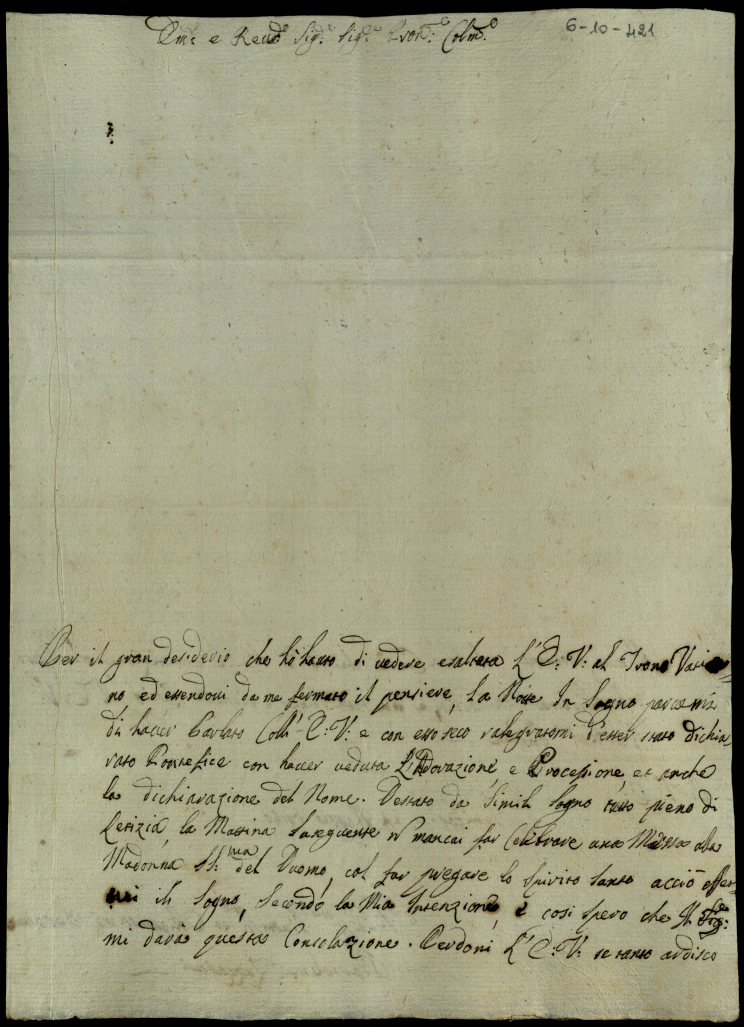 Em:e e Reud:o Sig:e Sig:e Pron:e Colm:o
6-10-421
Per il gran desiderio che hò hauto di vedere esaltata l'E: V: al Trono Vatica
no, ed essendovi da me fermato il pensiere, la Notte In Sogno parvemi
di haver Parlato Coll' E: V: e con esso seco ralegratomi d'esser stato dichia
rato Pontefice con haver veduta l'Adorazione, e Processione, et anche
la dichiarazione del Nome. Destato da Simili Sogno tutto pieno di
Letizia, la Mattina Sureguente nō mancai far Celebrare una Messa alla
Madonna SS:ma del Duomo, col far pregare lo Spirito Santo acciò
il Sogno, Secondo la Mia Intenzione, e cosi spero che Il
mi darà questa Consolazione. Perdoni l'E: V: se tanto ardisco